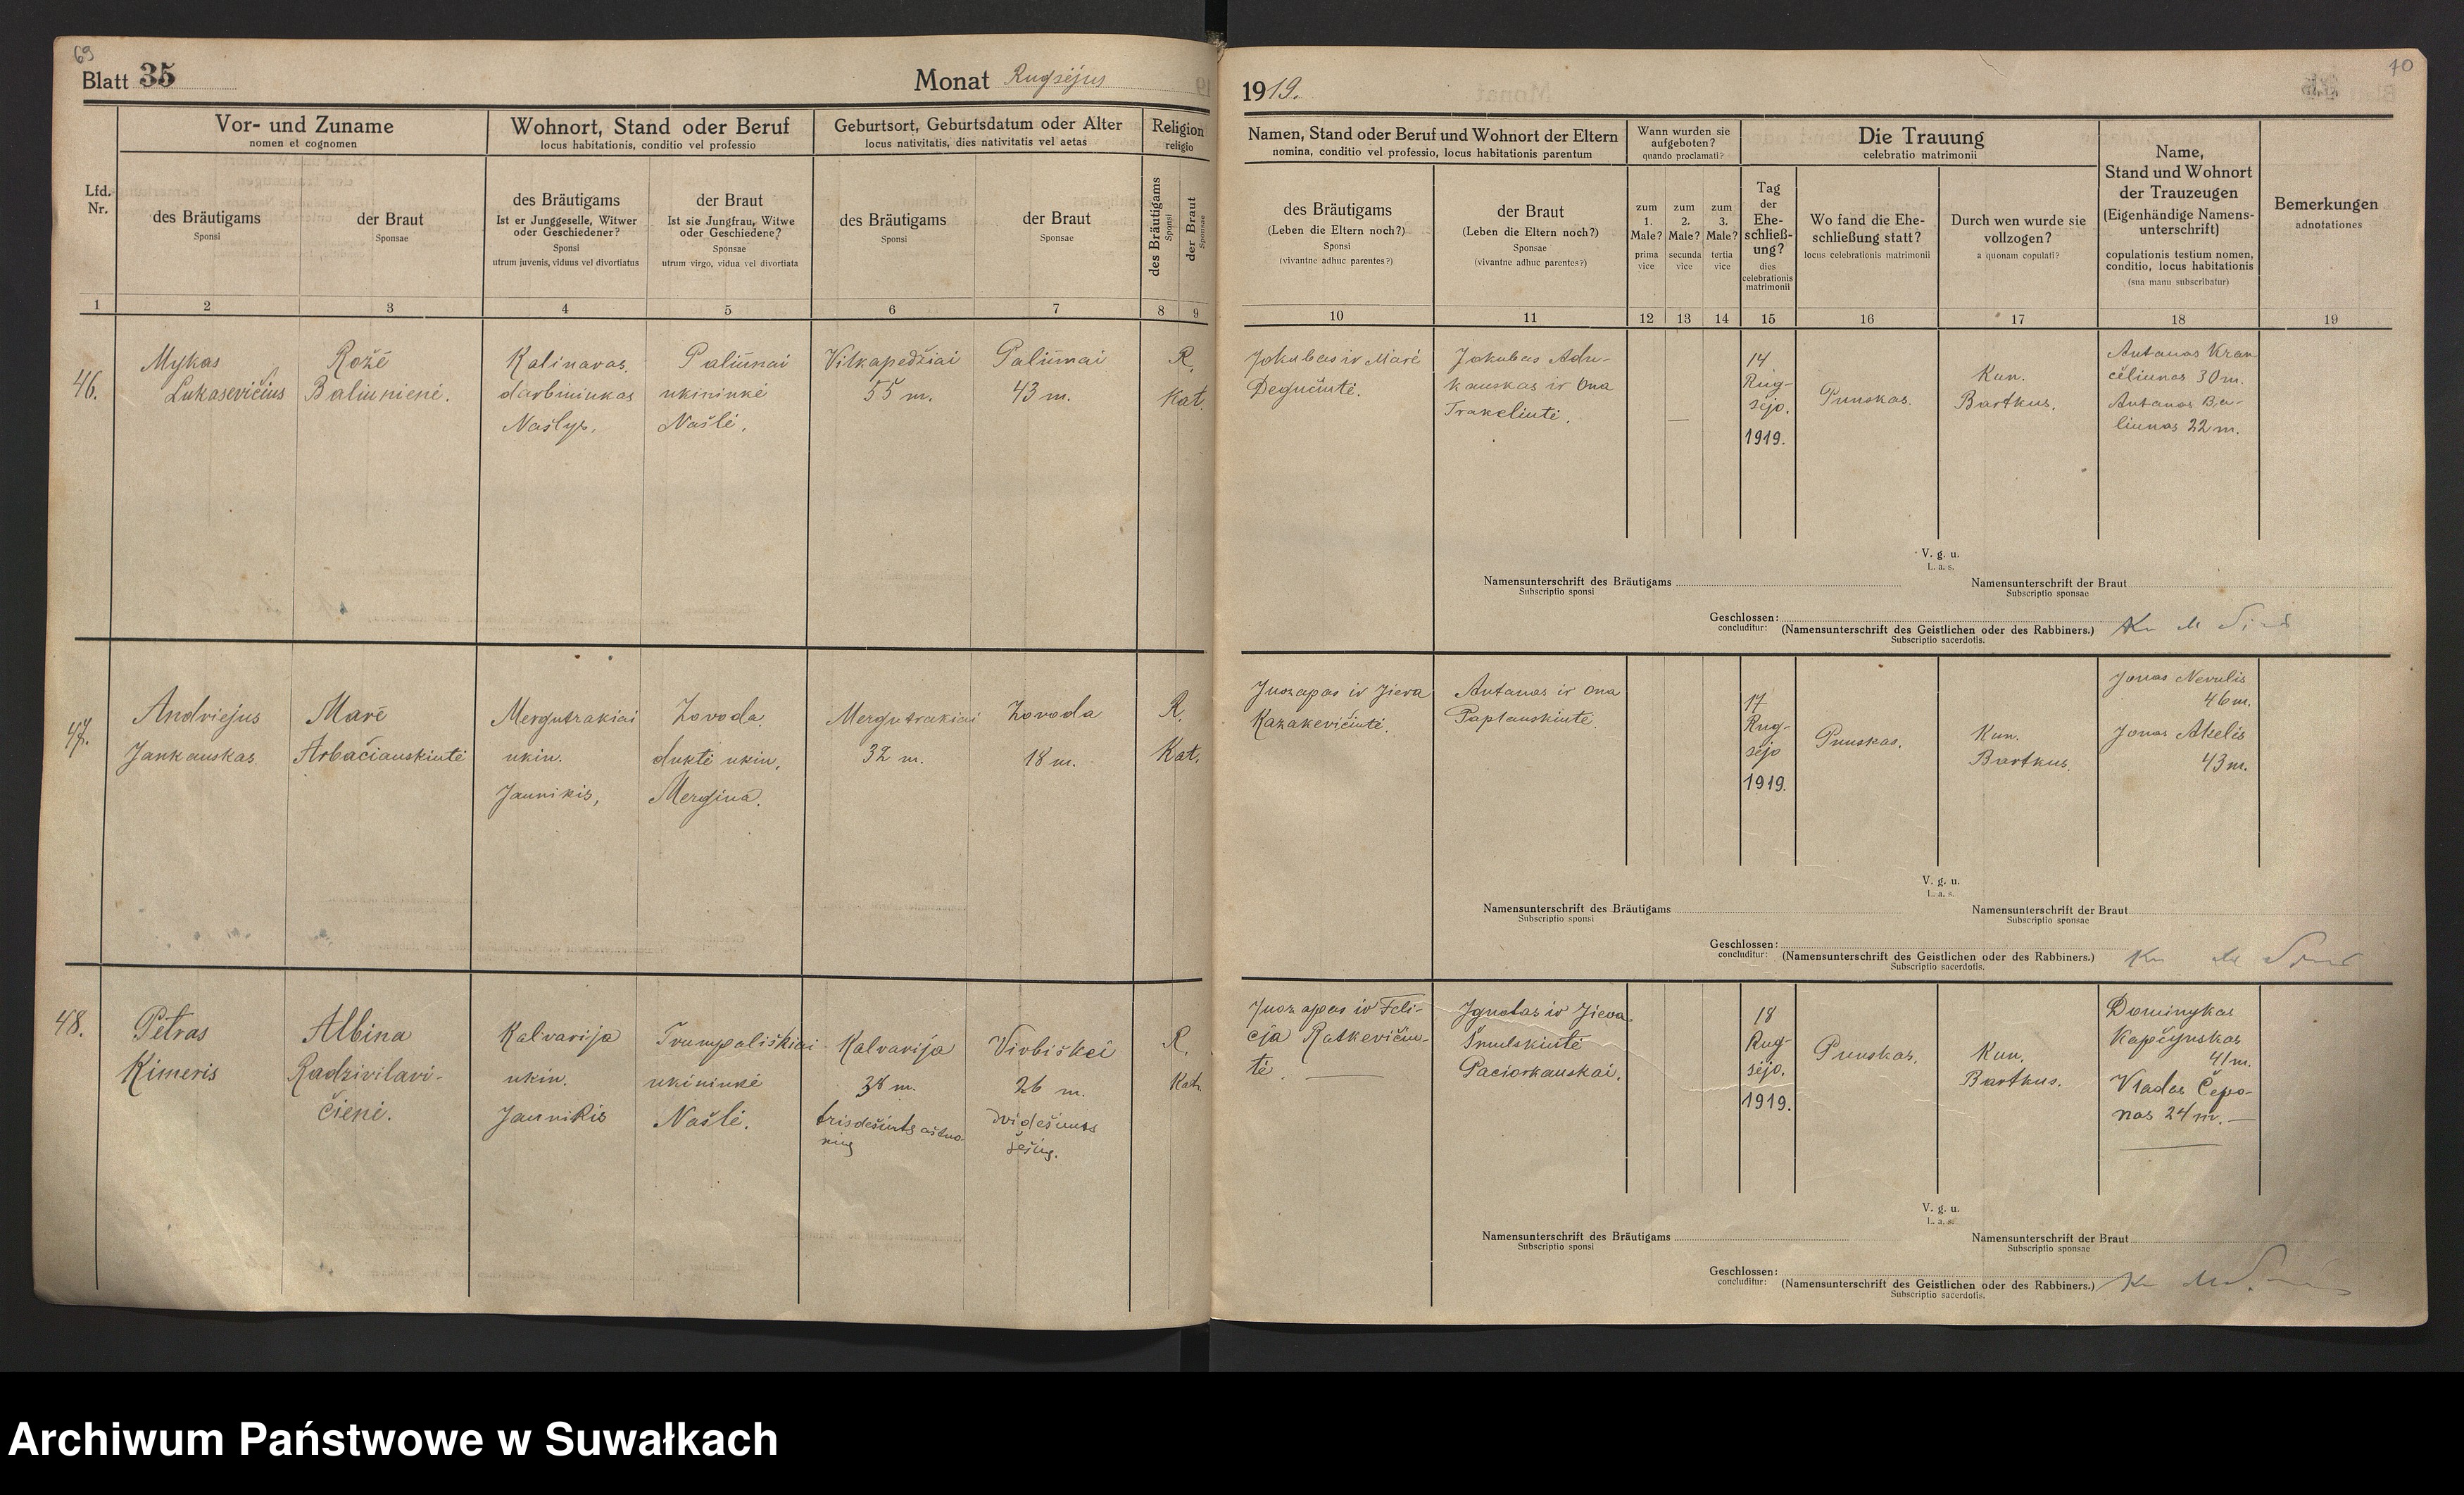 69
Blatt 35
Monat Rugsėjus
Vor- und Zuname
nomen et cognomen
Wohnort, Stand oder Beruf
locus habitationis, conditio vel professio
Geburtsort, Geburtsdatum oder Alter
locus nativitatis, dies nativitatis vel aetas
Religion
religio
Lfd. Nr.
des Bräutigams
Sponsi
der Braut
Sponsae
des Bräutigams
Ist er Junggeselle, Witwer
oder Geschiedener?
Sponsi
utrum juvenis, viduus vel divortiatus
der Braut
Ist sie Jungfrau, Witwe
oder Geschiedene?
Sponsae
utrum virgo, vidua vel divortiata
des Bräutigams
Sponsi
der Braut
Sponsae
des Bräutigams
Sponsi
der Braut
Sponsae
1 2 3 4 5 6 7 8 9
46.
Mykas
Lukasevičius
Rožė
Baliunienė.
Kalinavas.
darbininkas
Našlys.
Paliūnai
ukininkė
Našlė.
Vilkapedžiai
55 m.
Paliūnai
43 m.
R.
Kat.
47.
Andriejus
Jankauskas
Marė
Arbačiauskiutė
Mergutrakiai
ukin.
Jaunikis,
Zovoda.
duktė ukin.
Mergina.
Mergutrakiai
32 m.
Zovoda
18 m.
R.
Kat.
48.
Petras
Kimeris
Albina
Radzivilavi-
čienė.
Kalvarija
ukin.
Jaunikis
Trumpališkiai
ukininkė
Našlė.
Kalvarija
38 m.
trisdešimts aštuo-
nių
Virbiškei
26 m.
dvidešimts
šešių.
R.
Kat.
70
1919.
Namen, Stand oder Beruf und Wohnort der Eltern
nomina, conditio vel professio, locus habitationis parentum
Wann wurden sie
aufgeboten?
quando proclamati?
Die Trauung
celebratio matrimonii
Name,
Stand und Wohnort
der Trauzeugen
(Eigenhändige Namens-
unterschrift)
copulationis testium nomen,
conditio, locus habitationis
(sua manu subscribatur)
Bemerkungen
adnotationes
des Bräutigams
(Leben die Eltern noch?)
Sponsi
(vivantne adhuc parentes?)
der Braut
(Leben die Eltern noch?)
Sponsae
(vivantne adhuc parentes?)
zum
1.
Male?
prima
vice
zum
2.
Male?
secunda
vice
zum
3.
Male?
tertia
vice
Tag
der
Ehe-
schließ-
ung?
dies
celebrationis
matrimonii
Wo fand die Ehe-
schließung statt?
locus celebrationis matrimonii
Durch wen wurde sie
vollzogen?
a quonam copulati?
10 11 12 13 14 15 16 17 18 19
Jokubas ir Marė
Degučiutė.
Jokubas Adu-
kauskas ir Ona
Trakeliutė.
—
14
Rug-
sėjo.
1919.
Punskas.
Kun.
Bartkus.
Antanas Kran
čeliunas 30 m.
Antanas Ba-
liunas 22 m.
V. g. u.
L. a. s.
Namensunterschrift des Bräutigams
Subscriptio sponsi
Namensunterschrift der Braut
Subscriptio sponsae
Geschlossen:
concluditur:
(Namensunterschrift des Geistlichen oder des Rabbiners.)
Subscriptio sacerdotis.
Juozapas ir Jieva
Kazakevičiutė.
Antanas ir Ona
Paplauskiutė.
17
Rug-
sėjo
1919.
Punskas.
Kun.
Bartkus.
Jonas Nevulis
46 m.
Jonas Akelis
43 m.
V. g. u.
L. a. s.
Namensunterschrift des Bräutigams
Subscriptio sponsi
Namensunterschrift der Braut
Subscriptio sponsae
Geschlossen:
concluditur:
(Namensunterschrift des Geistlichen oder des Rabbiners.)
Subscriptio sacerdotis.
Juozapas ir Feli-
cja Ratkevičiu-
tė. —
Ignotas ir Jieva
Šmulskiutė
Paciorkauskai.
18
Rug-
sėjo.
1919.
Punskas.
Kun.
Bartkus.
Dominykas
Kapčynskas
41 m.
Vladas Čepo-
nas 24 m. —
V. g. u.
L. a. s.
Namensunterschrift des Bräutigams
Subscriptio sponsi
Namensunterschrift der Braut
Subscriptio sponsae
Geschlossen:
concluditur:
(Namensunterschrift des Geistlichen oder des Rabbiners.)
Subscriptio sacerdotis.
Archiwum Państwowe w Suwałkach